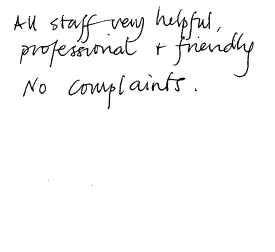 All staff very helpful,
professional + friendly
No complaints.